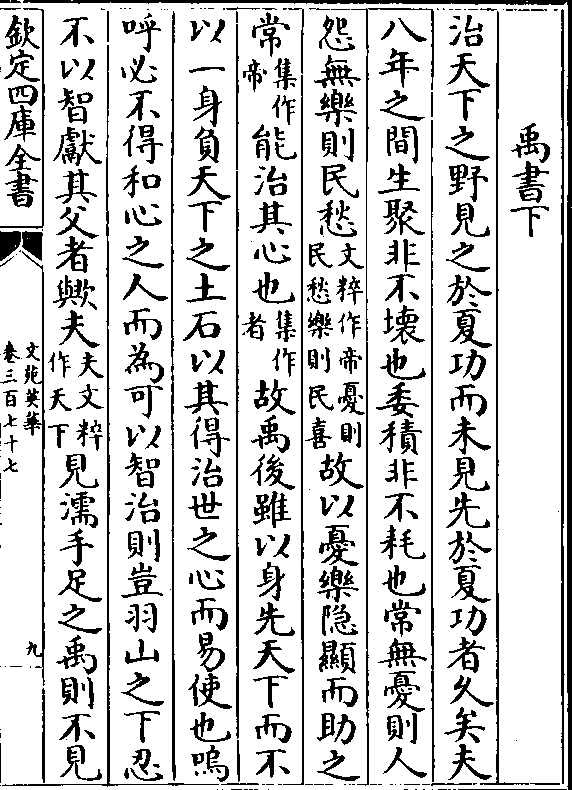 禹書下
治天下之野見之於夏功而未見先於夏功者久矣夫
八年之間生聚非不壞也委積非不耗也常無憂則人
怨無樂則民愁文粹作帝憂則民愁樂則民喜故以憂樂隐顯而助之
常集作帝能治其心也集作者故禹後雖以身先天下而不
以一身負天下之土石以其得治世之心而易使也嗚
呼必不得和心之人而為可以智治則豈羽山之下忍
不以智獻其父者歟夫夫文粹作天下見濡手足之禹則不見
欽定四庫全書
文苑英華
卷三百七十七
九